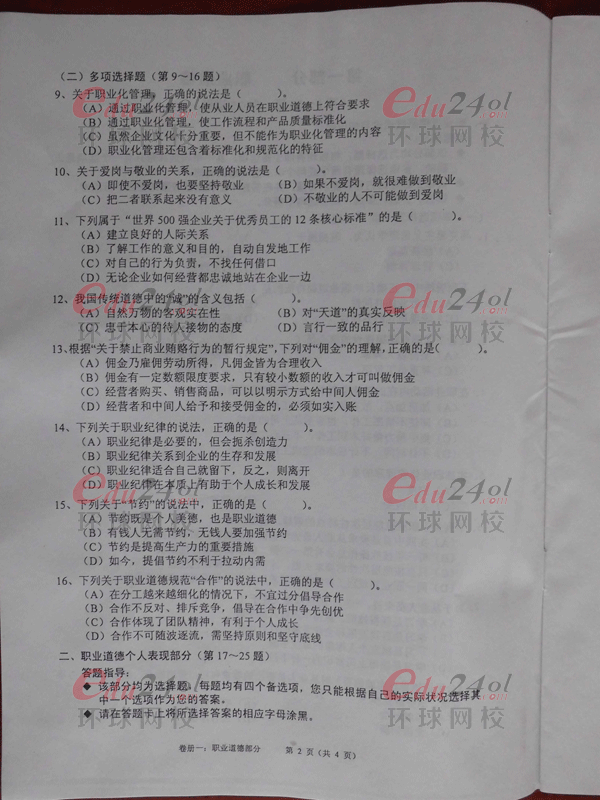 （二）多项选择题（第9～16题）
9、关于职业化管理，正确的说法是（　　）。
（A）通过职业化管理，使从业人员在职业道德上符合要求
（B）通过职业化管理，使工作流程和产品质量标准化
（C）虽然企业文化十分重要，但不能作为职业化管理的内容
（D）职业化管理还包含着标准化和规范化的特征
10、关于爱岗与敬业的关系，正确的说法是（　　）。
（A）即使不爱岗，也要坚持敬业　（B）如果不爱岗，就很难做到敬业
（C）把二者联系起来没有意义　（D）不敬业的人不可能做到爱岗
11、下列属于“世界500强企业关于优秀员工的12条核心标准”的是（　　）。
（A）建立良好的人际关系
（B）了解工作的意义和目的，自动自发地工作
（C）对自己的行为负责，不找任何借口
（D）无论企业如何经营都忠诚地站在企业一边
12、我国传统道德中的“诚”的含义包括（　　）。
（A）自然万物的客观实在性　（B）对“天道”的真实反映
（C）忠于本心的待人接物的态度　（D）言行一致的品行
13、根据“关于禁止商业贿赂行为的暂行规定”，下列对“佣金”的理解，正确的是（　　）。
（A）佣金乃雇佣劳动所得，凡佣金皆为合理收入
（B）佣金有一定数额限度要求，只有较小数额的收入才可叫做佣金
（C）经营者购买、销售商品，可以以明示方式给中间人佣金
（D）经营者和中间人给予和接受佣金的，必须如实入账
14、下列关于职业纪律的说法，正确的是（　　）。
（A）职业纪律是必要的，但会扼杀创造力
（B）职业纪律关系到企业的生存和发展
（C）职业纪律适合自己就留下，反之，则离开
（D）职业纪律在本质上有助于个人成长和发展
15、下列关于“节约”的说法中，正确的是（　　）。
（A）节约既是个人美德，也是职业道德
（B）有钱人无需节约，无钱人要加强节约
（C）节约是提高生产力的重要措施
（D）如今，提倡节约不利于拉动内需
16、下列关于职业道德规范“合作”的说法中，正确的是（　　）。
（A）在分工越来越细化的情况下，不宜过分倡导合作
（B）合作不反对、排斥竞争，倡导在合作中争先创优
（C）合作体现了团队精神，有利于个人成长
（D）合作不可随波逐流，需坚持原则和坚守底线
二、职业道德个人表现部分（第17～25题）
答题指导：
◆ 该部分均为选择题，每题均有四个备选项，您只能根据自己的实际状况选择其
中一个选项作为您的答案。
◆ 请在答题卡上将所选择答案的相应字母涂黑。
卷册一：职业道德部分　第2页（共4页）
edu24ol
环球网校
edu24ol
环球网校
edu24ol
环球网校
edu24ol
环球网校
edu24ol
环球网校
edu24ol
环球网校
edu24ol
环球网校
edu24ol
环球网校